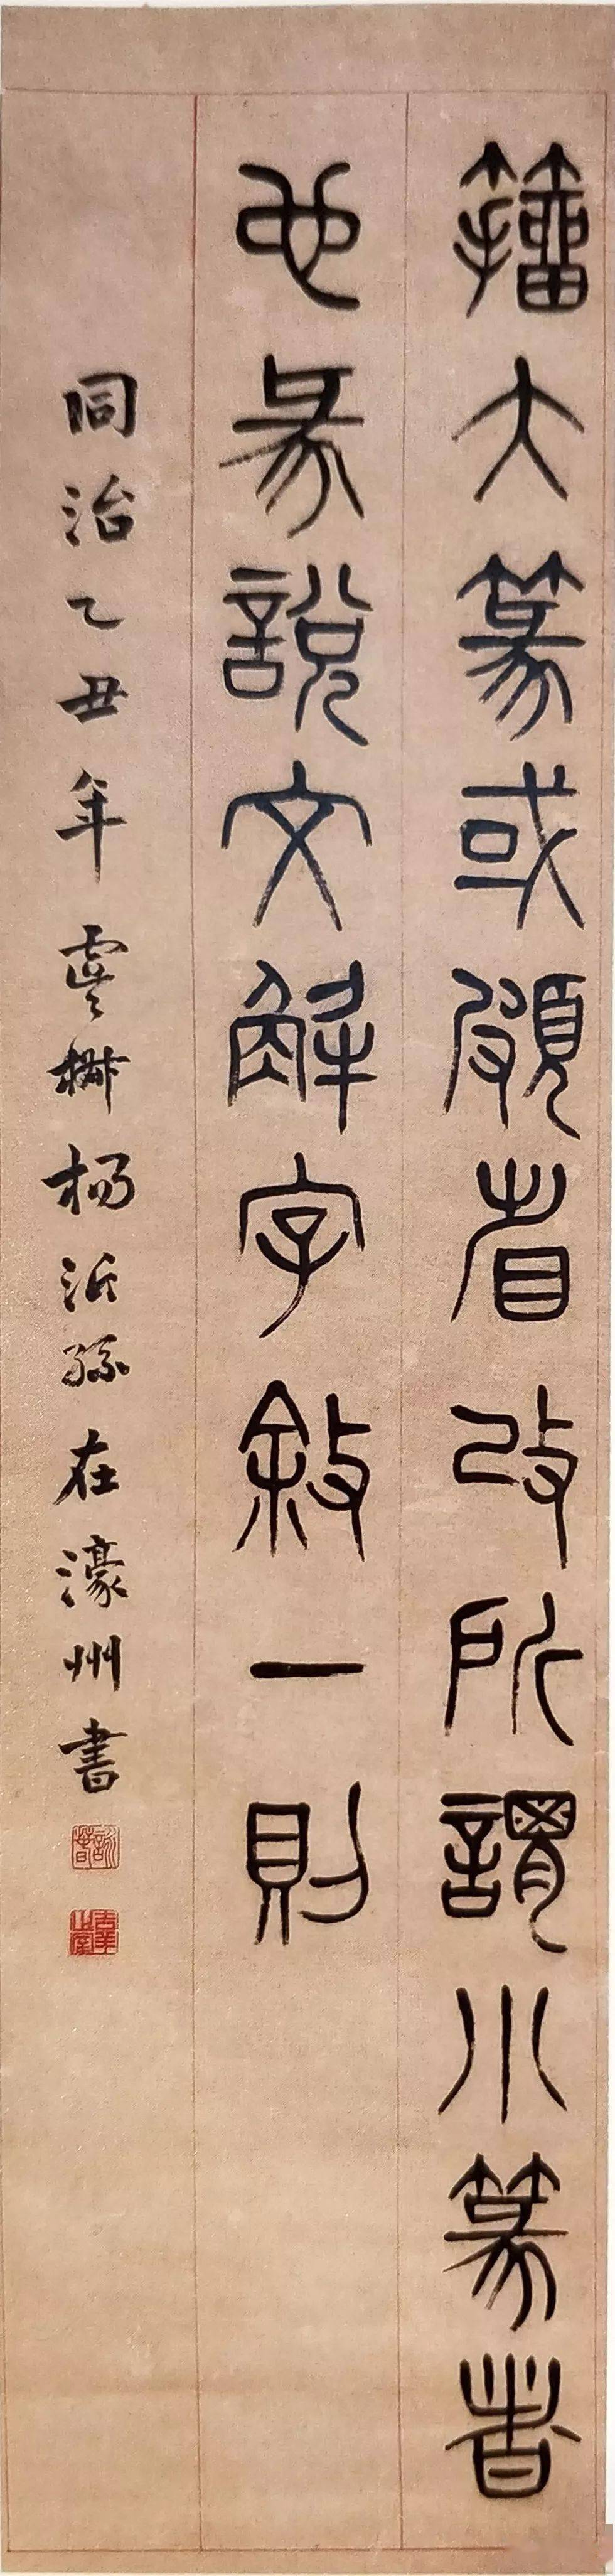 籀大篆或頗省改所謂小篆者
也彖說文解字敘一則
同治乙丑年虞楊沂孫在濠州書
詠春